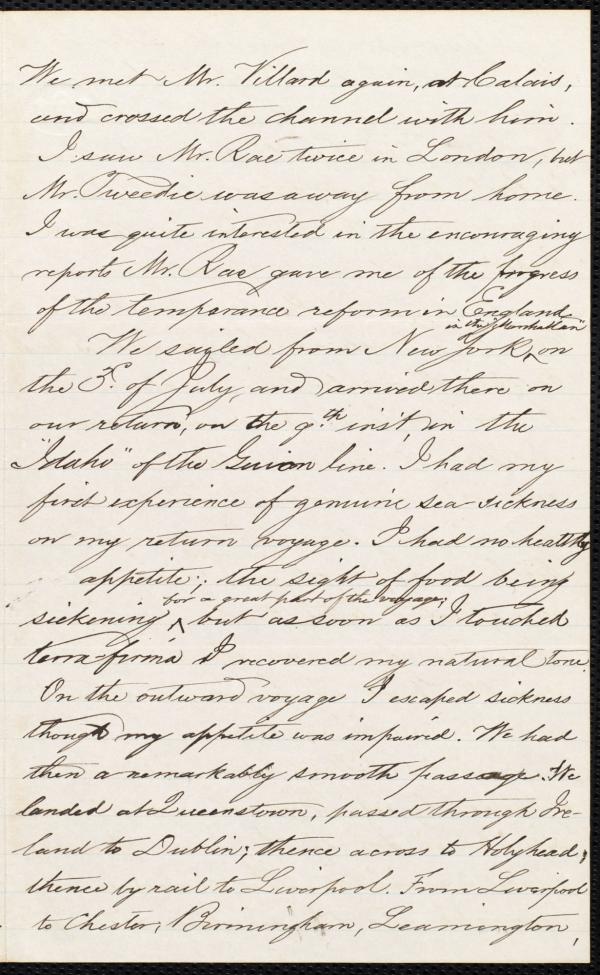 We met Mr. Villard again, at Calais,
and crossed the channel with him.
I saw Mr. Rae twice in London, but
Mr. Tweedie was away from home.
I was quite interested in the encouraging
reports Mr. Rae gave me of the progress
of the temperance reform in England.
in the "Marmallan"
We sailed from New York, ‸ on
the 3d. of July, and arrived there on
our return, on the 9.th inst, in the
"Idaho" of the Guion line. I had my
first experience of genuine sea sickness
on my return voyage. I had no healthy
appetite; the sight of food being
for a great part of the voyage;
sickening ‸ but as soon as I touched
terra firma I recovered my natural tone.
On the outward voyage I escaped sickness
though my appetite was impaired. We had
then a remarkably smooth passage. We
landed at Queenstown, passed through Ire-
land to Dublin; thence across to Holyhead;
thence by rail to Liverpool. From Liverpool
to Chester, Birmingham, Leamington,